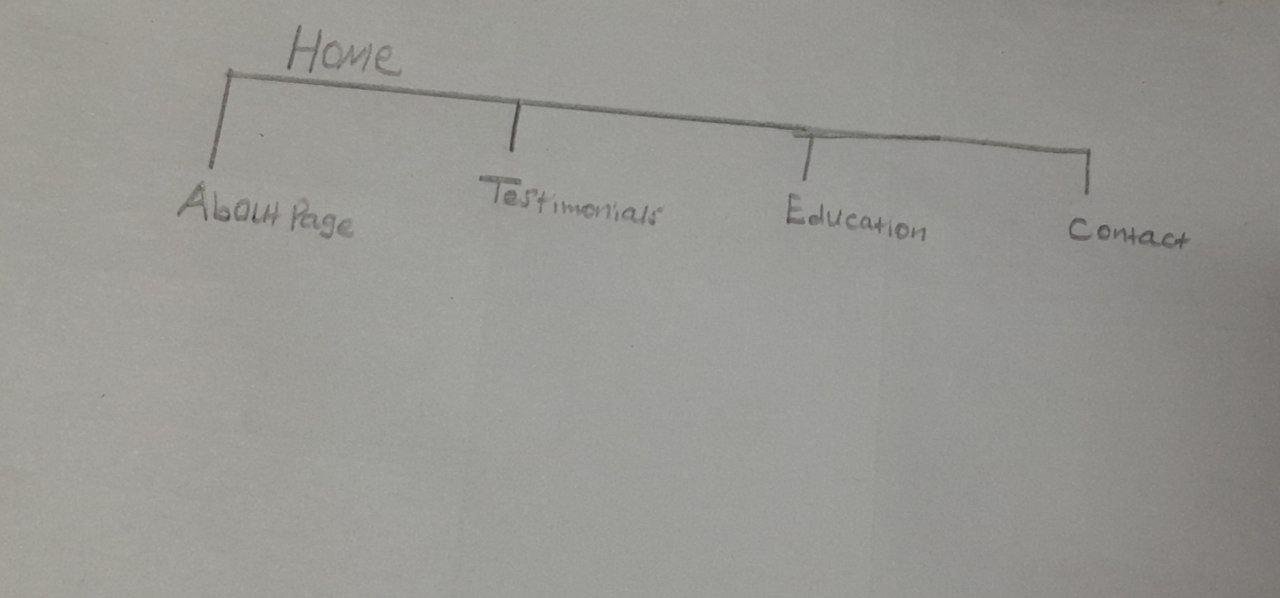 Home
About Page
Testimonials
Education
Contact